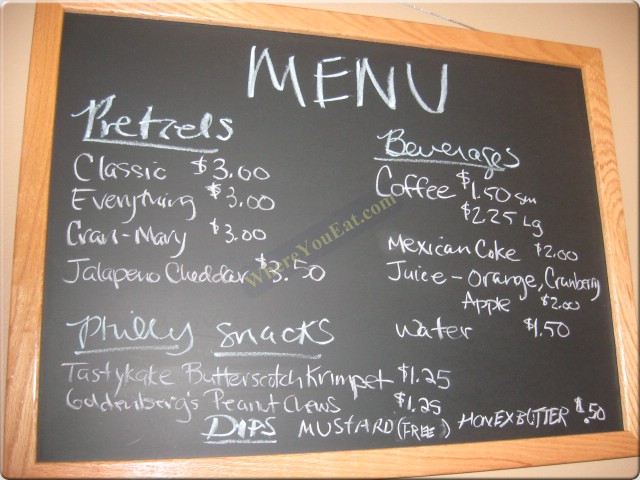 MENU
Pretzels
Classic $3.00
Everything $3.00
Cran-Mary $3.00
Jalapeno Cheddar $3.50
Beverages
Coffee $1.50 sm
$2.25 Lg
Mexican Coke $2.00
Juice - Orange, Cranberry
Apple $2.00
Water $1.50
Philly Snacks
Tastykake Butterscotch Krimpet $1.25
Goldenberg's Peanut Chews $1.25
DIPS MUSTARD (FREE) HONEY BUTTER $.50
WhereYouEat.com